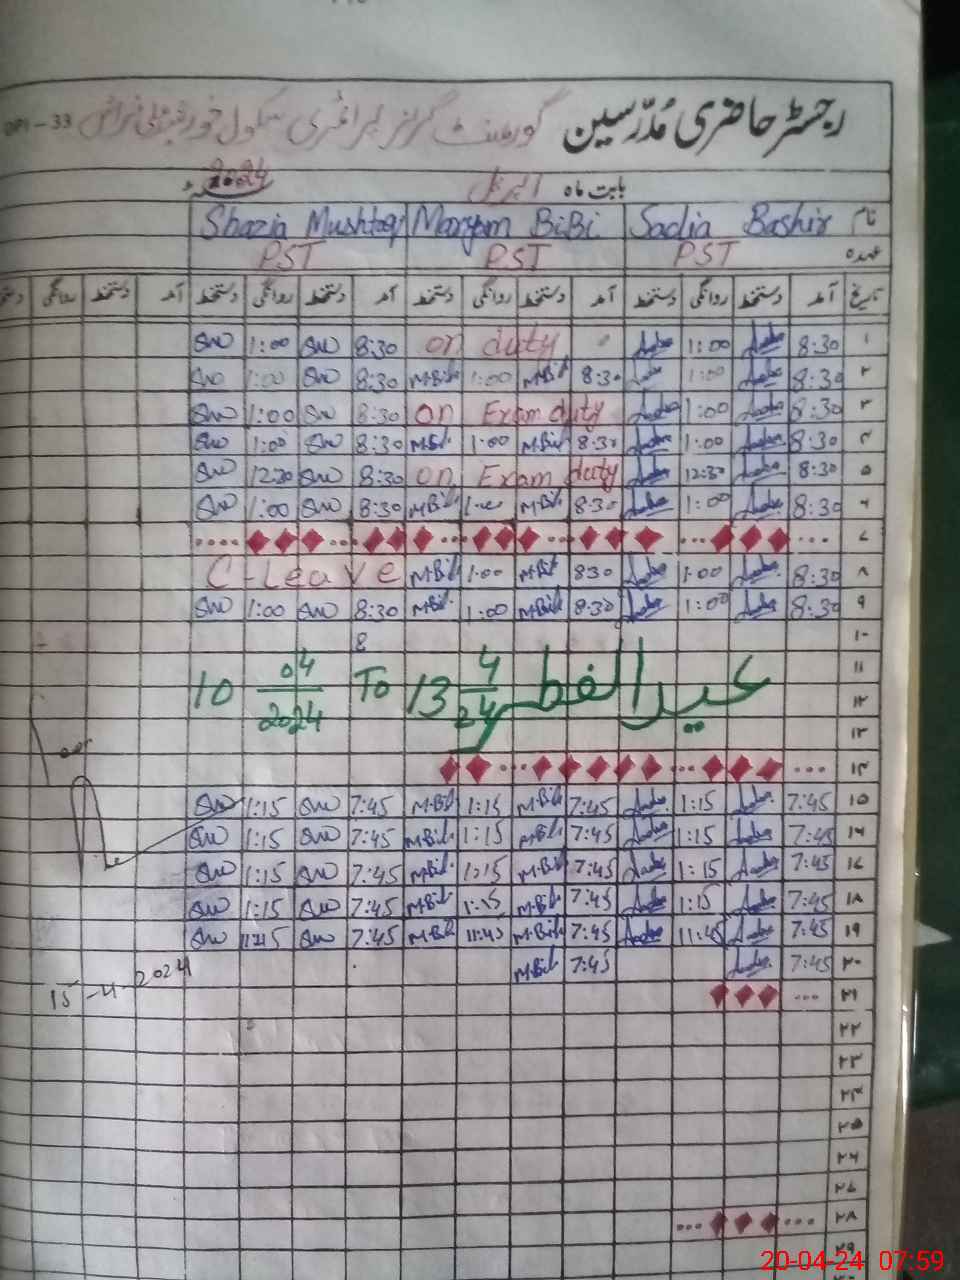 رجسٹر حاضری مُدرّسین گورنمنٹ گرلز پرائمری سکول
بابت ماہ اپریل 2024ء
نام Sadia Bashir Maryam BiBi Shazia Mushtaq
عہدہ PST PST PST
تاریخ آمد دستخط روانگی دستخط آمد دستخط روانگی دستخط آمد دستخط روانگی دستخط آمد دستخط روانگی
۱ 8:30 1:00 on duty 8:30 SM 1:00 SM
۲ 8:30 1:00 8:30 M.Bibi 1:00 M.Bibi 8:30 SM 1:00 SM
۳ 8:30 1:00 on Exam duty 8:30 SM 1:00 SM
۴ 8:30 1:00 8:30 M.Bibi 1:00 M.Bibi 8:30 SM 1:00 SM
۵ 8:30 12:30 on Exam duty 8:30 SM 12:30 SM
۶ 8:30 1:00 8:30 M.Bibi 1:00 M.Bibi 8:30 SM 1:00 SM
۷
۸ 8:30 1:00 830 M.Bibi 1:00 M.Bibi C-Leave
۹ 8:30 1:00 8:30 M.Bibi 1:00 M.Bibi 8:30 SM 1:00 SM
۱۰ 8
۱۱
عید الفطر 10 04/2024 To 13 4/24
۱۲
۱۳
۱۴
۱۵ 7:45 1:15 7:45 M.Bibi 1:15 M.Bibi 7:45 SM 1:15 SM
۱۶ 7:45 1:15 7:45 M.Bibi 1:15 M.Bibi 7:45 SM 1:15 SM
۱۷ 7:45 1:15 7:45 M.Bibi 1:15 M.Bibi 7:45 SM 1:15 SM
۱۸ 7:45 1:15 7:45 M.Bibi 1:15 M.Bibi 7:45 SM 1:15 SM
۱۹ 7:45 11:45 7:45 M.Bibi 11:45 M.Bibi 7:45 SM 11:45 SM
۲۰ 7:45 7:45 M.Bibi
15-4-2024
۲۱
۲۲
۲۳
۲۴
۲۵
۲۶
۲۷
۲۸
۲۹
20-04-24 07:59